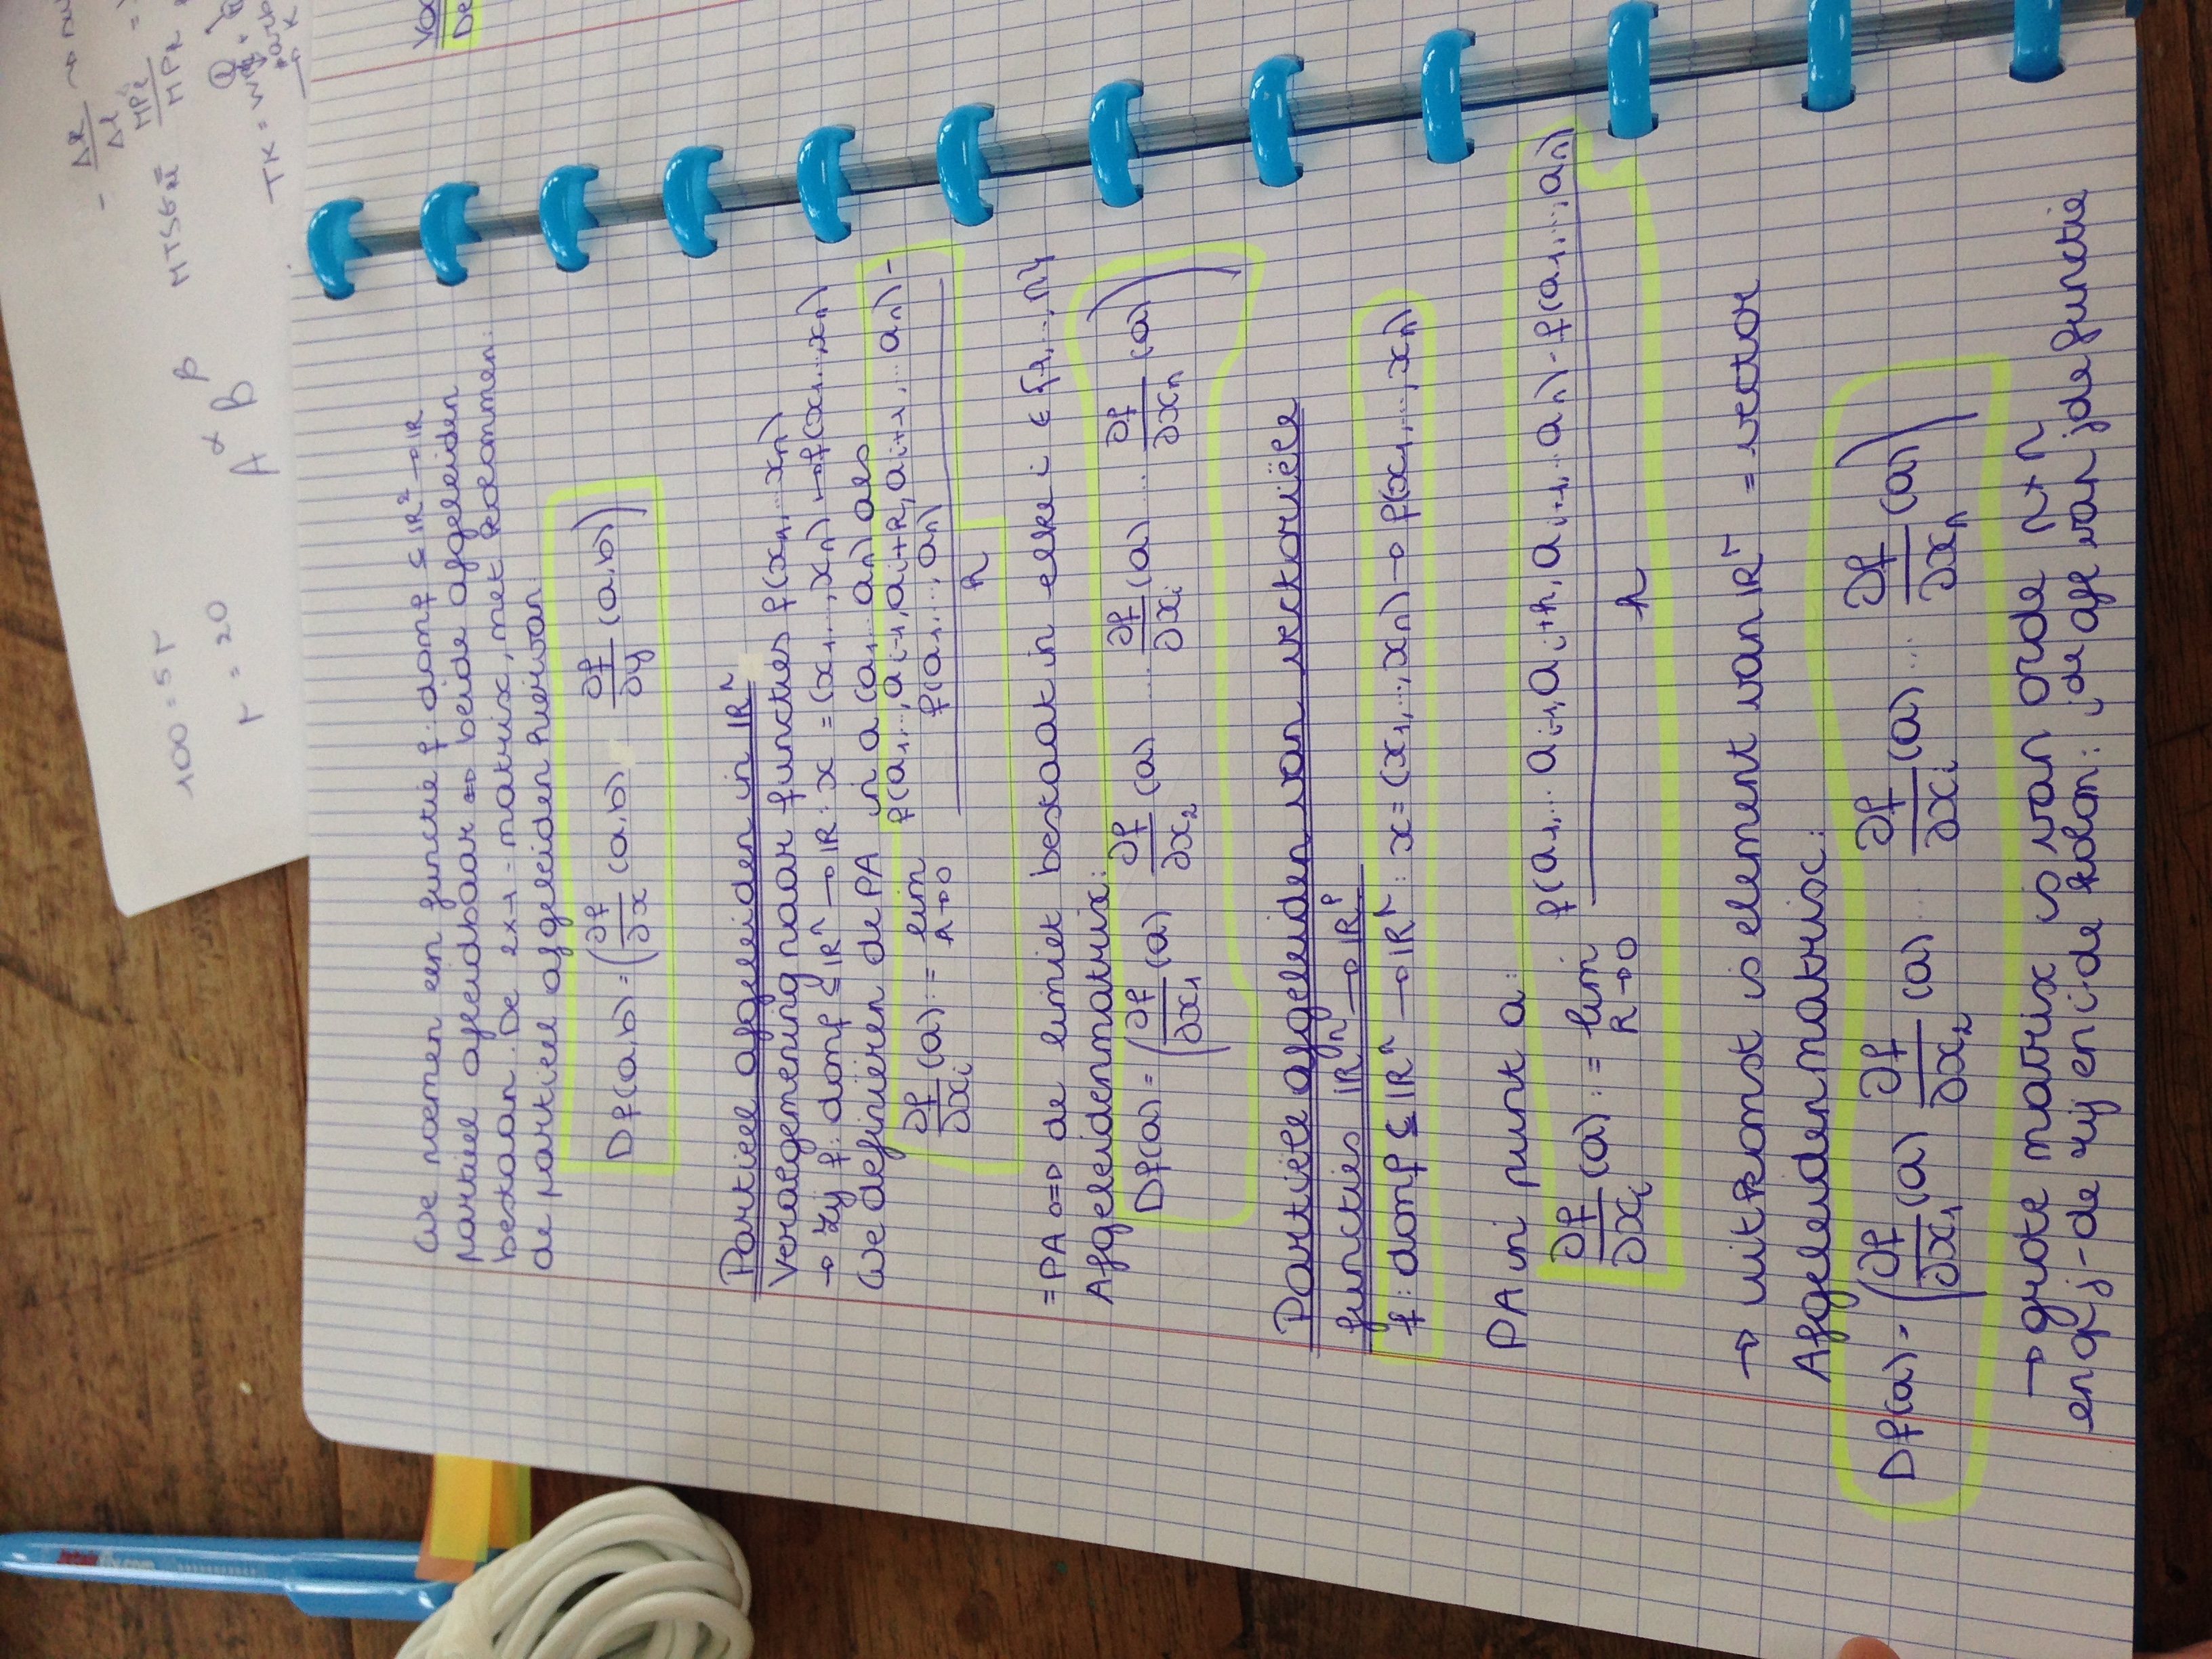 We noemen een functie f: domf ⊆ ℝ² → ℝ
partieel afleidbaar ⇔ beide afgeleiden
bestaan. De 2x1-matrix, met bekommen
de partieel afgeleiden hiervan:
Df(a,b) = (∂f/∂x (a,b) ∂f/∂y (a,b))
Partieel afgeleiden in ℝⁿ
Veralgemening naar functies f(x₁,...xₙ)
→ zij f: domf ⊆ ℝⁿ → ℝ: x = (x₁,...,xₙ) → f(x₁...xₙ)
We definiëren de PA in a (a₁,... aₙ) als
∂f/∂xᵢ (a) := lim h→0 f(a₁,..., aᵢ₋₁, aᵢ+h, aᵢ₊₁,... aₙ) - f(a₁,..., aₙ) / h
= PA ⇔ de limiet bestaat in elke i ∈ {1,...,n}
Afgeleidenmatrix:
Df(a) = (∂f/∂x₁ (a) ∂f/∂x₂ (a) ... ∂f/∂xᵢ (a) ... ∂f/∂xₙ (a))
Partiële afgeleiden van vectoriële
functies ℝⁿ → ℝᵖ
f: domf ⊆ ℝⁿ → ℝʳ: x = (x₁,...,xₙ) → f(x₁,...,xₙ)
PA in punt a:
∂f/∂xᵢ (a) := lim h→0 f(a₁,... aᵢ₋₁, aᵢ+h, aᵢ₊₁,... aₙ) - f(a₁,..., aₙ) / h
→ uitkomst is element van ℝʳ = vector
Afgeleidenmatrix:
Df(a) = (∂f/∂x₁ (a) ∂f/∂x₂ (a) ... ∂f/∂xᵢ (a) ... ∂f/∂xₙ (a))
→ grote matrix is van orde r×n
en of j-de rij en i-de kolom: iде afg van jde functie
100 = 5r
r = 20
A^α B^β